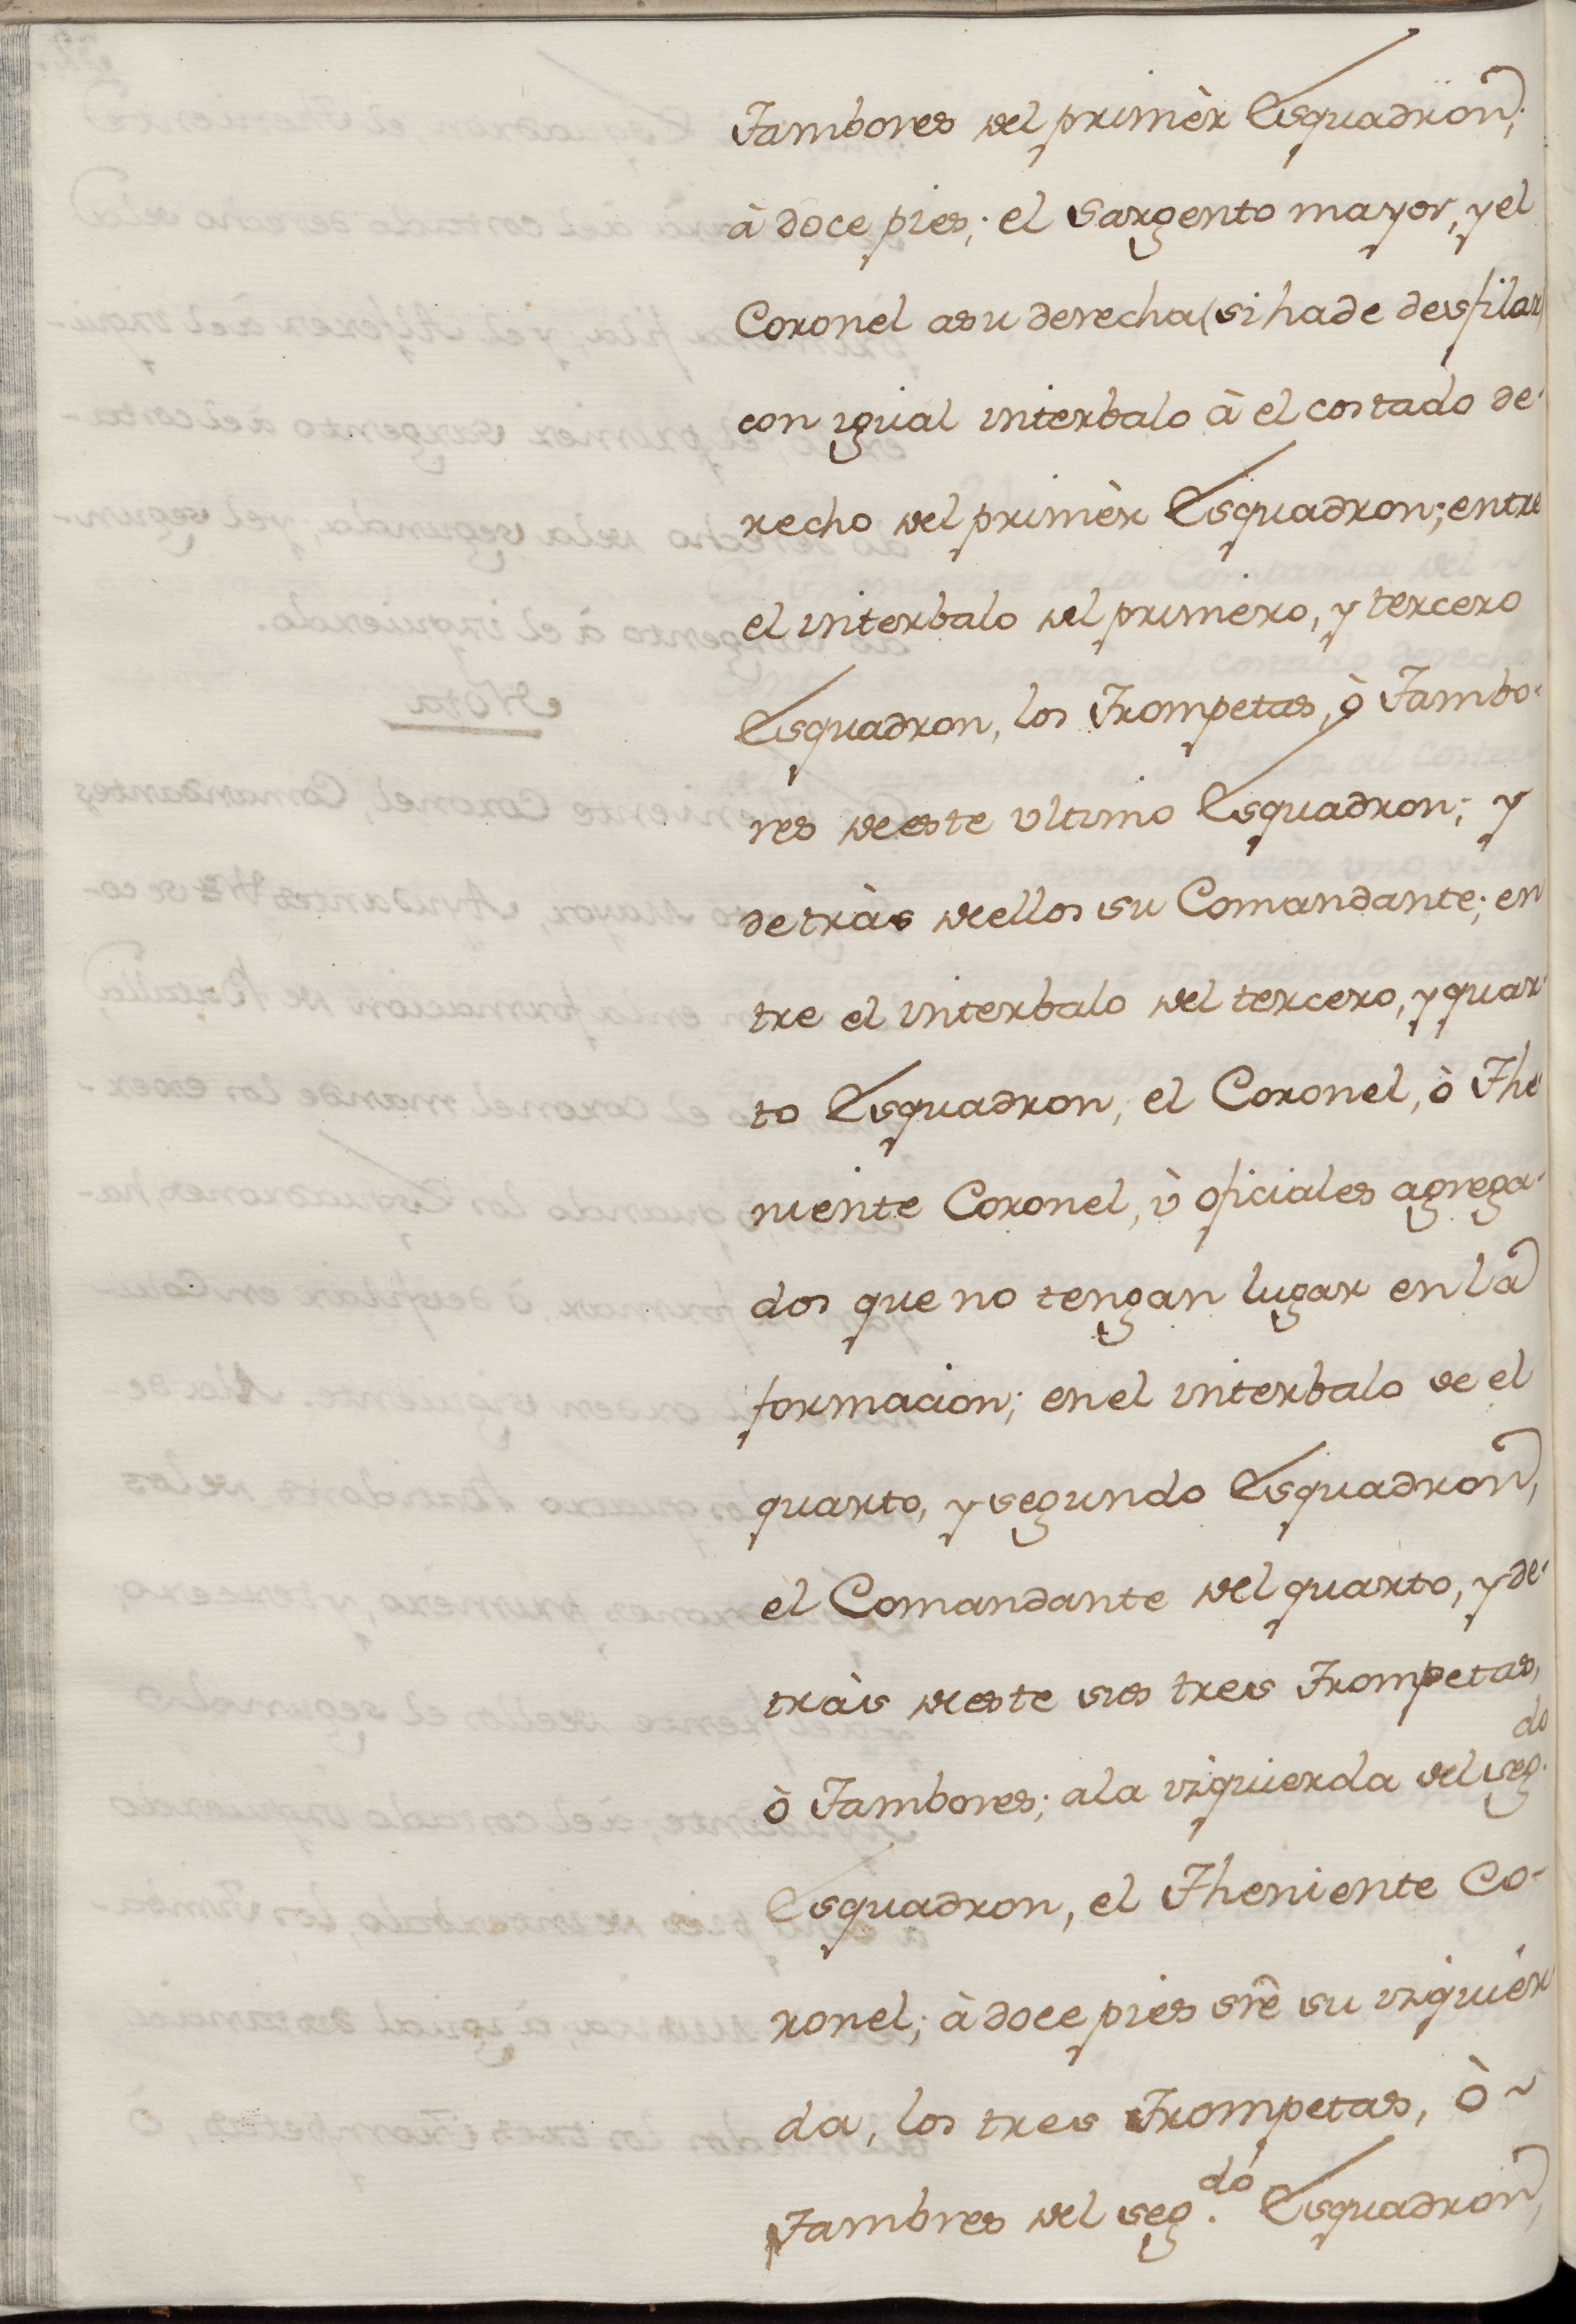 Tambores del primèr Esquadron;
à doce pies; el Sargento mayor, y el
Coronel asu derecha (si hade desfilar)
con igual interbalo à el costado de-
recho del primèr Esquadron; entre
el interbalo del primero, y tercero
Esquadron, los Trompetas, ò Tambo-
res de este ultimo Esquadron; y
detràs de ellos su Comandante; en
tre el interbalo del tercero, y quar-
to Esquadron, el Coronel, ò The
niente Coronel, ù oficiales agrega-
dos que no tengan lugar en la
formacion; en el interbalo de el
quarto, y segundo Esquadron,
el Comandante del quarto, y de-
tràs de este sus tres Trompetas,
ò Tambores; ala izquierda del seg.do
Esquadron, el Theniente Co-
ronel; à doce pies sre su izquier
da, los tres Trompetas, ò
Tambres del seg.do Esquadron,